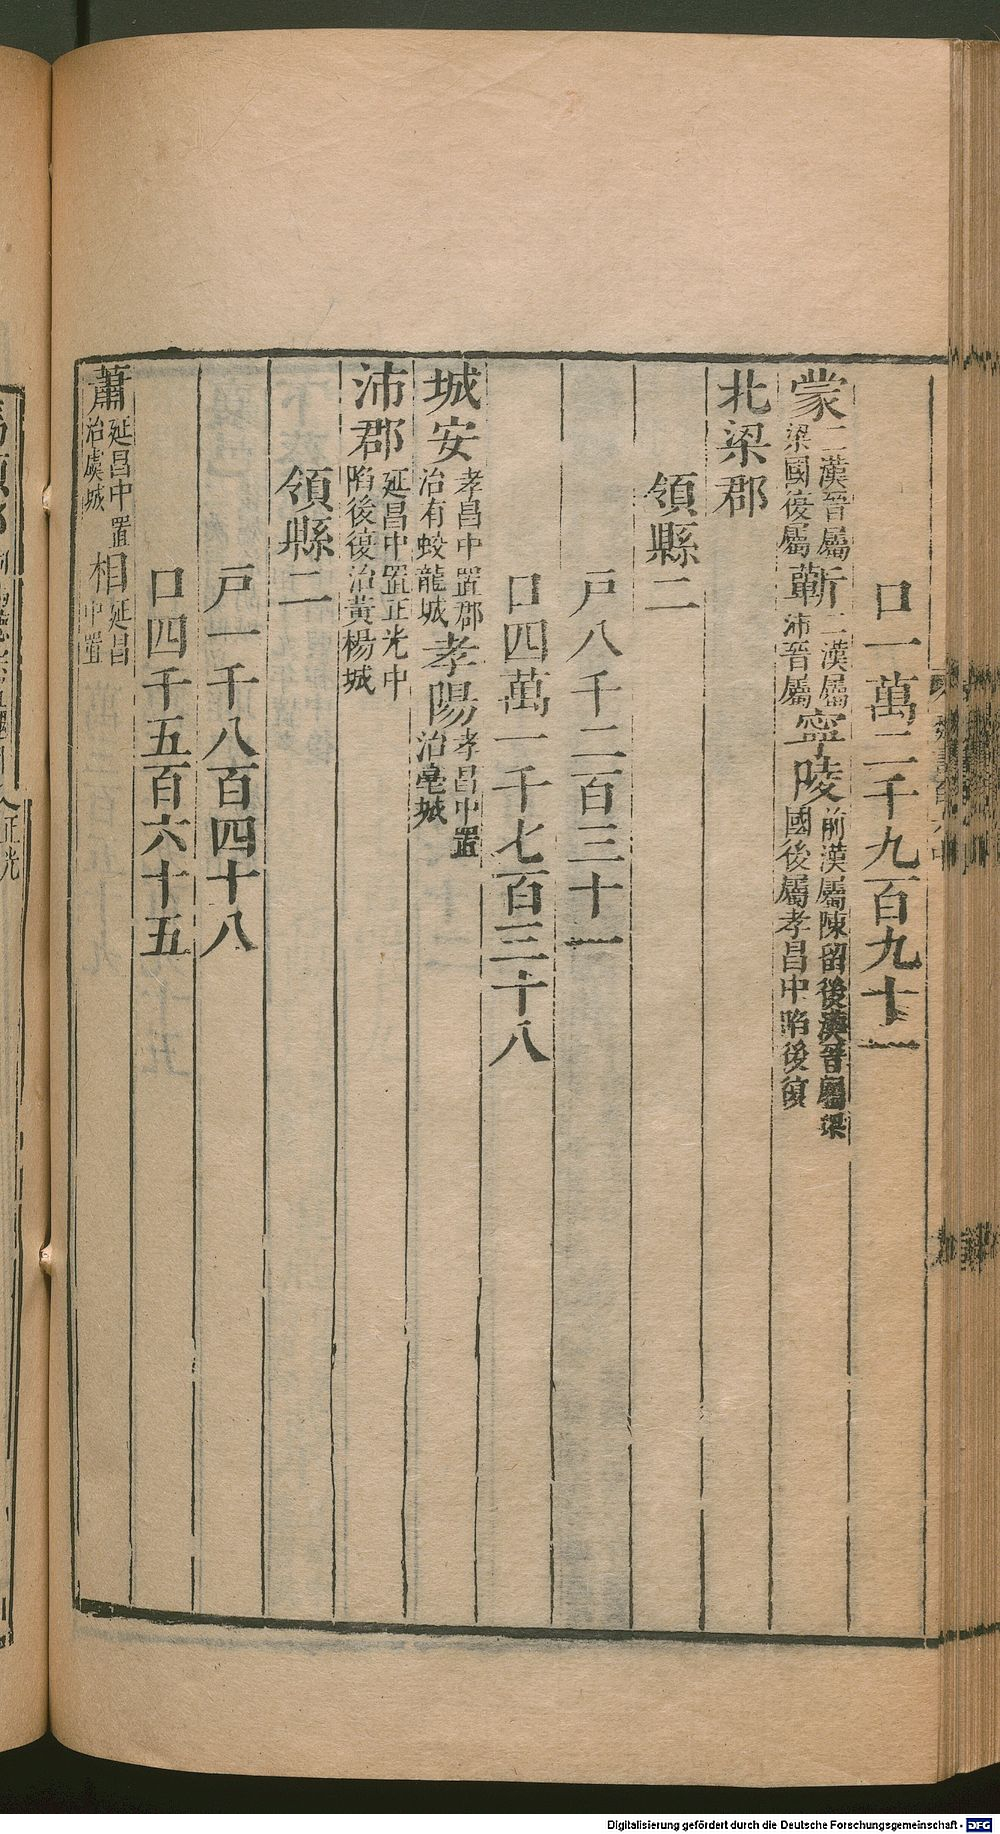 口一萬二千九百九十一
蒙二漢晉屬梁國後屬蘄二漢屬沛晉屬寧陵前漢屬陳留後漢晉屬梁國後屬孝昌中陷後復
北梁郡
領縣二
戶八千二百三十一
口四萬一千七百三十八
城安孝昌中置郡治有蛟龍城孝陽孝昌中置治亳城
沛郡延昌中置正光中陷後復治黃楊城
領縣二
戶一千八百四十八
口四千五百六十五
蕭延昌中置治虞城相延昌中置
正光
Digitalisierung gefördert durch die Deutsche Forschungsgemeinschaft - DFG